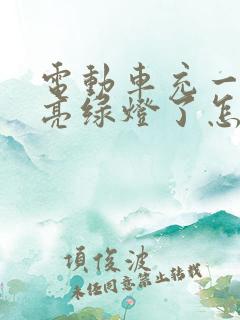 電動車充一
亮綠燈了怎
項俊波
未经同意禁止转载